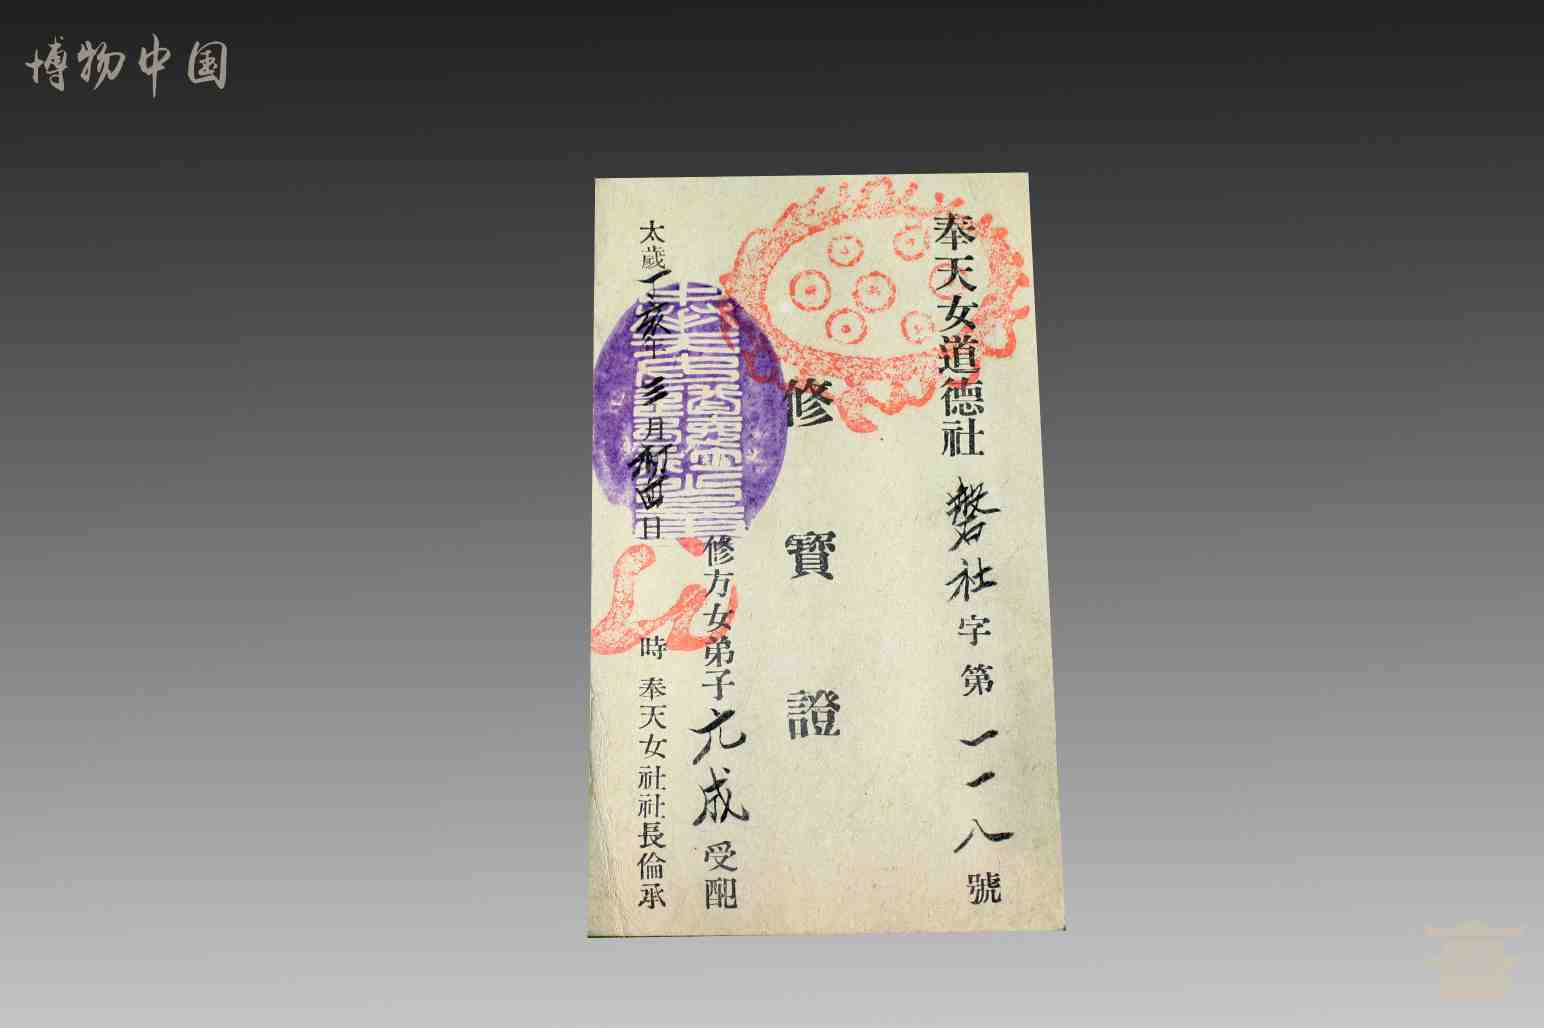 博物中国
奉天女道德社 磐社字第一一八號
修寶證
修方女弟子元成受配
太歲丁亥年三月初四日 時 奉天女社社長倫承